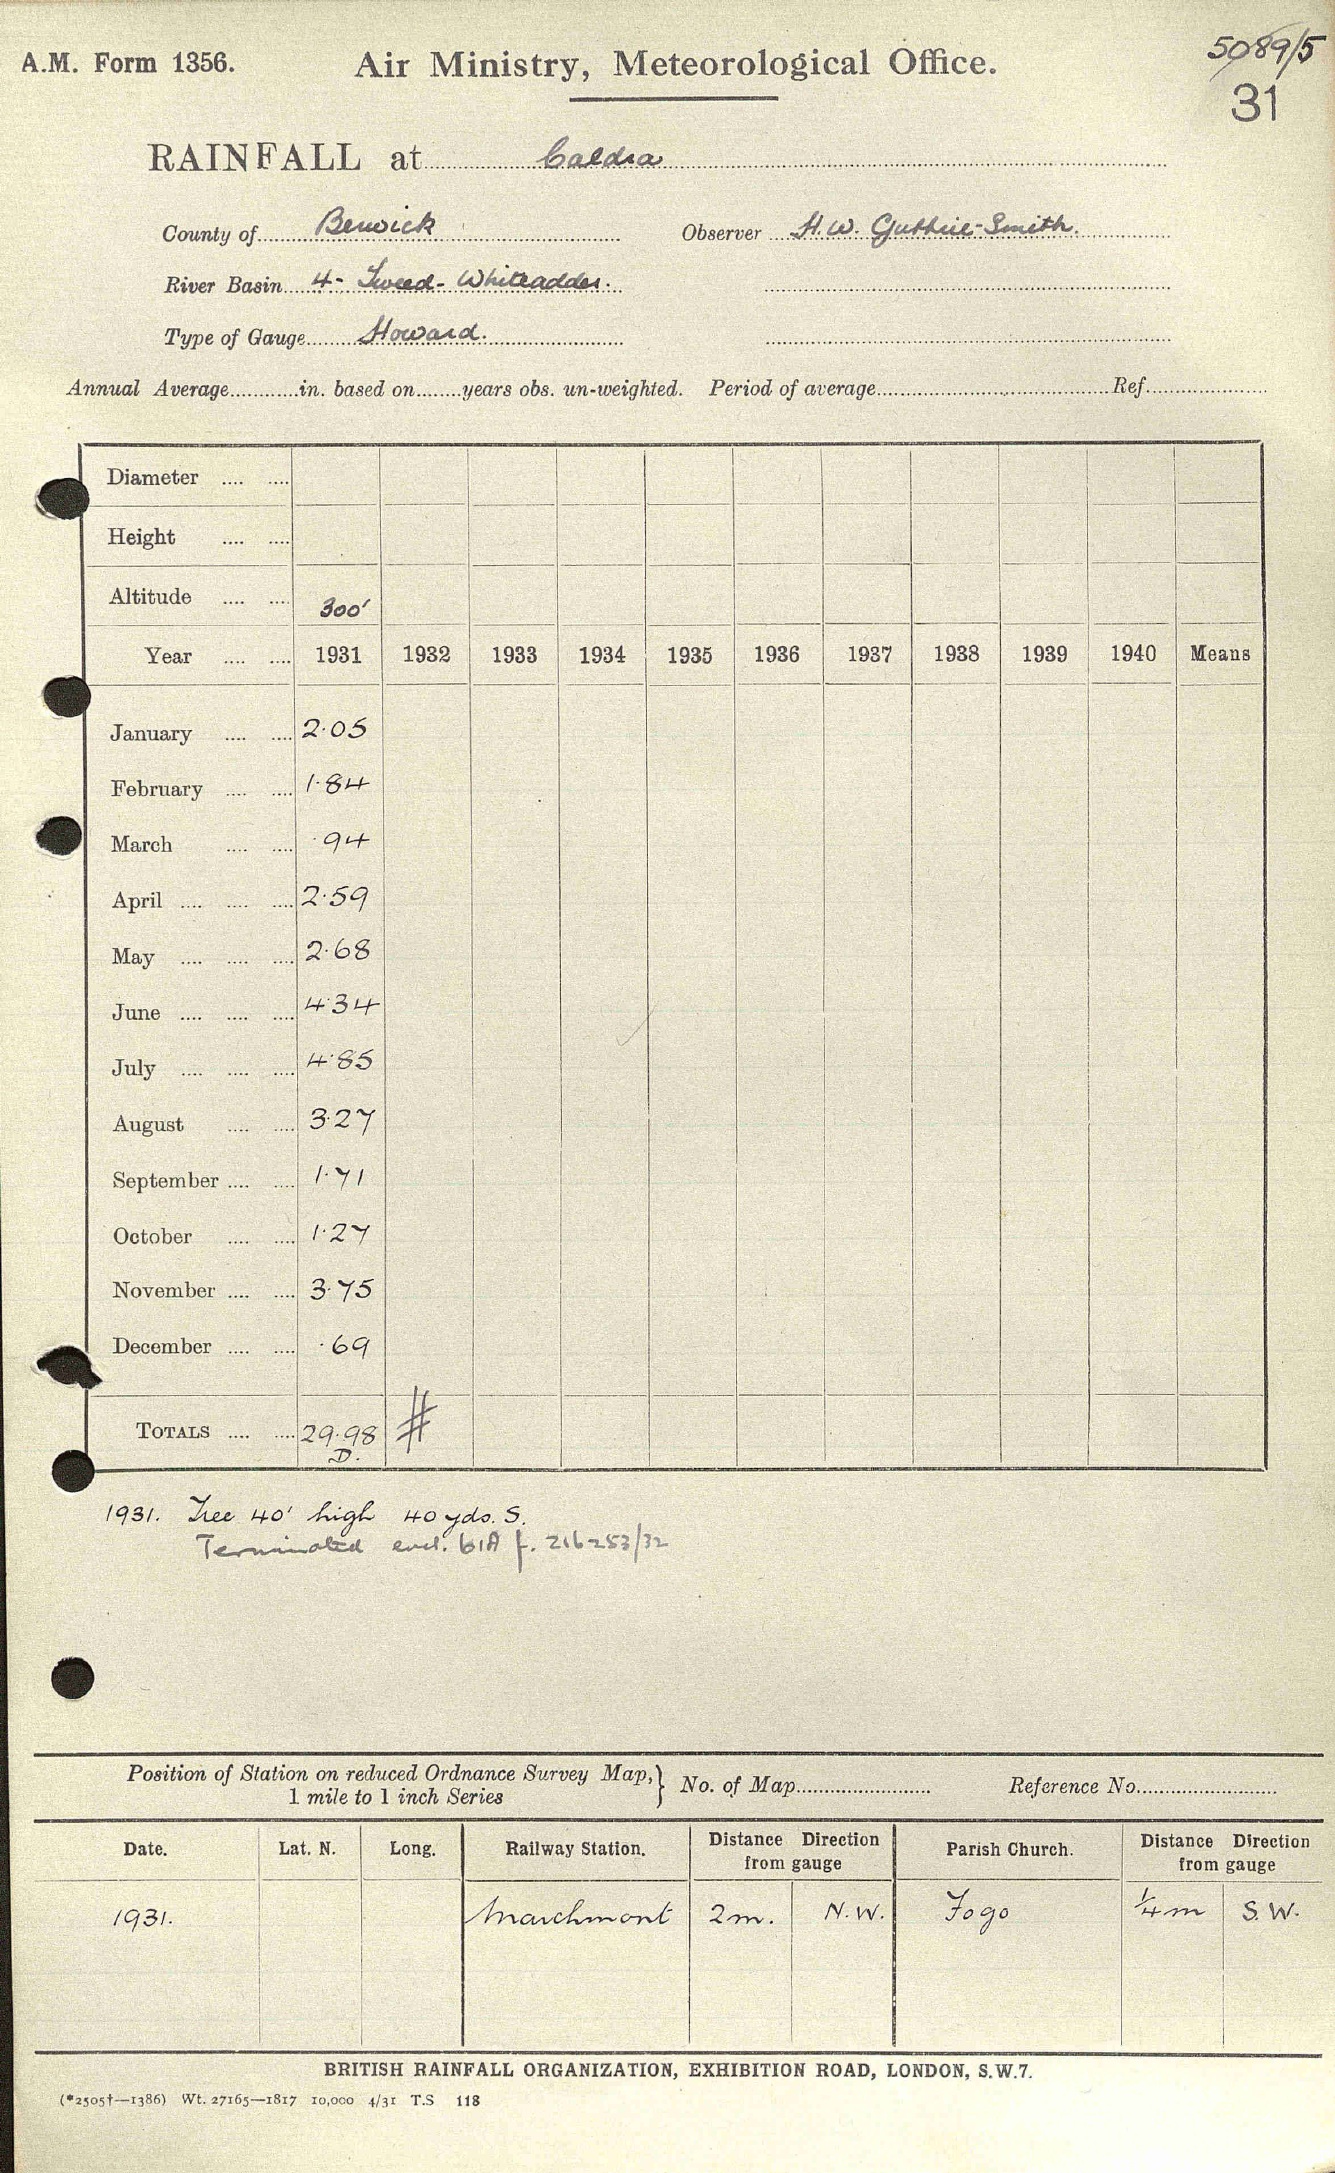 A.M. Form 1356. Air Ministry, Meteorological Office. 5089/5
31
RAINFALL at Caldra
County of Berwick Observer H.W. Guthrie-Smith.
River Basin 4- Tweed- Whiteadder.
Type of Gauge Howard.
Annual Average in. based on years obs. un-weighted. Period of average Ref.
Diameter
Height
Altitude 300'
Year 1931 1932 1933 1934 1935 1936 1937 1938 1939 1940 Means
January 2.05
February 1.84
March .94
April 2.59
May 2.68
June 4.34
July 4.85
August 3.27
September 1.71
October 1.27
November 3.75
December .69
TOTALS 29.98 #
D.
1931. Tree 40' high 40 yds. S.
Terminated encl. 61A f. 216253/32
Position of Station on reduced Ordnance Survey Map, 1 mile to 1 inch Series } No. of Map Reference No.
Date. Lat. N. Long. Railway Station. Distance Direction from gauge Parish Church. Distance Direction from gauge
1931. Marchmont 2m. N.W. Fogo ¼m S.W.
BRITISH RAINFALL ORGANIZATION, EXHIBITION ROAD, LONDON, S.W.7.
(*2505†—1386) Wt. 27165—1817 10,000 4/31 T.S 118